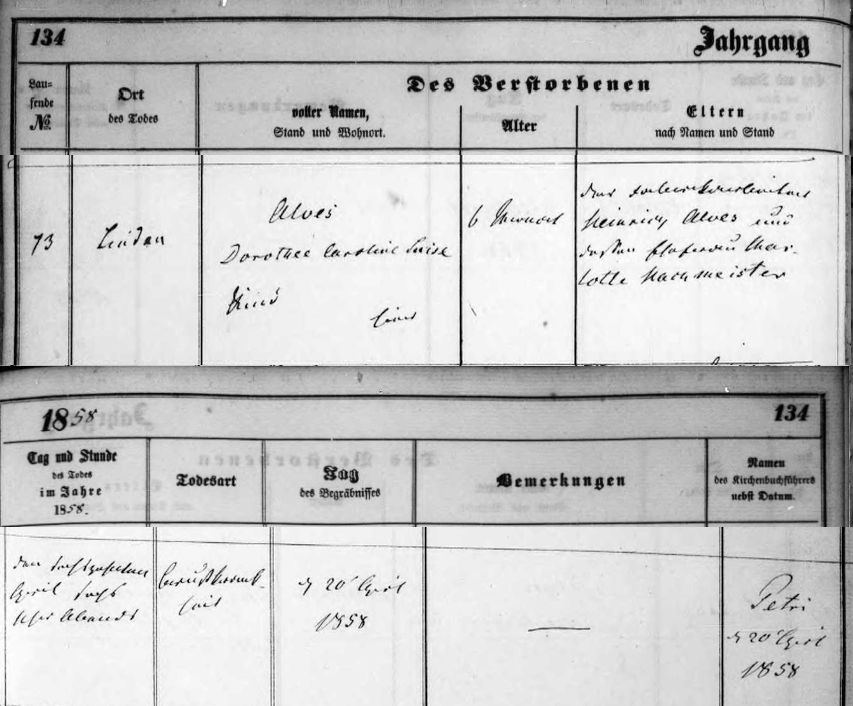 134
Jahrgang
Lau-
fende
№
Ort
des Todes
Des Verstorbenen
voller Namen,
Stand und Wohnort.
Alter
Eltern
nach Namen und Stand
73
Linden
Alves
Dorothee Caroline Luise
Kind
hier
6 Monat
des
Heinrich Alves und
dessen Ehefrau Char-
lotte Hachmeister
1858
134
Tag und Stunde
des Todes
im Jahre
1858.
Todesart
Tag
des Begräbnisses
Bemerkungen
Namen
des Kirchenbuchführers
nebst Datum.
den sechszehnten
April sechs
Uhr Abends
Brustkrank
heit
d 20 April
1858
—
Petri
d 20 April
1858